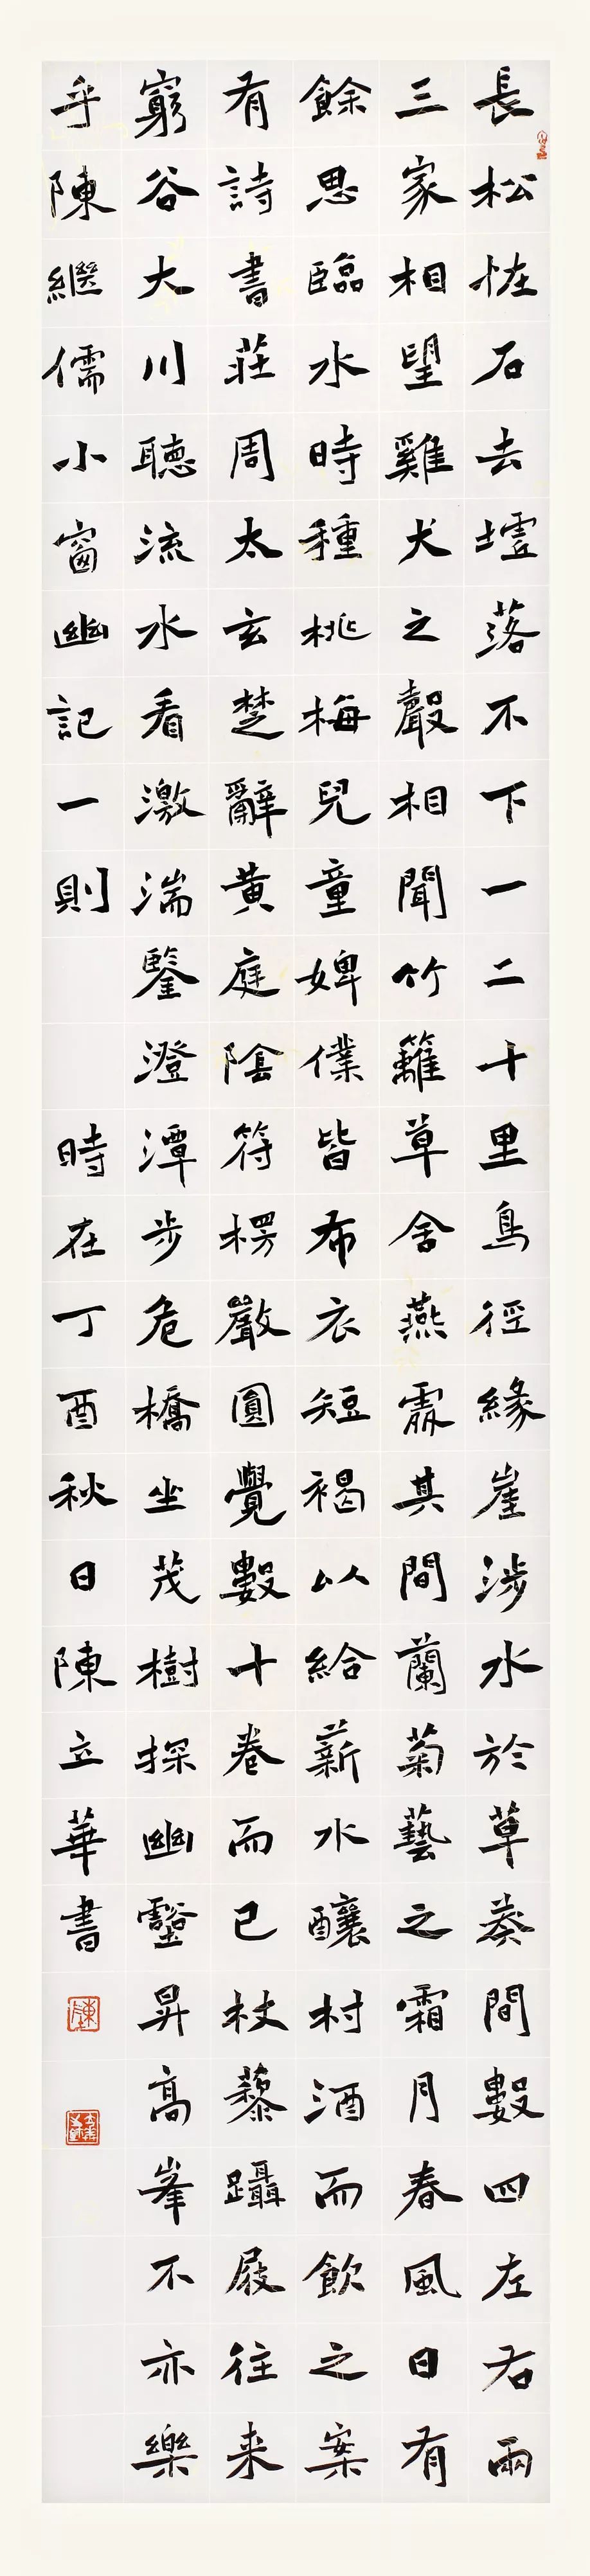 長松恠石去墟落不下一二十里鳥徑緣崖涉水於草莽間數四左右兩
三家相望雞犬之聲相聞竹籬草舍燕處其間蘭菊藝之霜月春風日有
餘思臨水時種桃梅兒童婢僕皆布衣短褐以給薪水釀村酒而飲之案
有詩書莊周太玄楚辭黃庭陰符楞嚴圓覺數十卷而已杖藜躡屐往来
窮谷大川聽流水看激湍鑒澄潭步危橋坐茂樹探幽壑昇高峯不亦樂
乎陳繼儒小窗幽記一則 時在丁酉秋日陳立華書